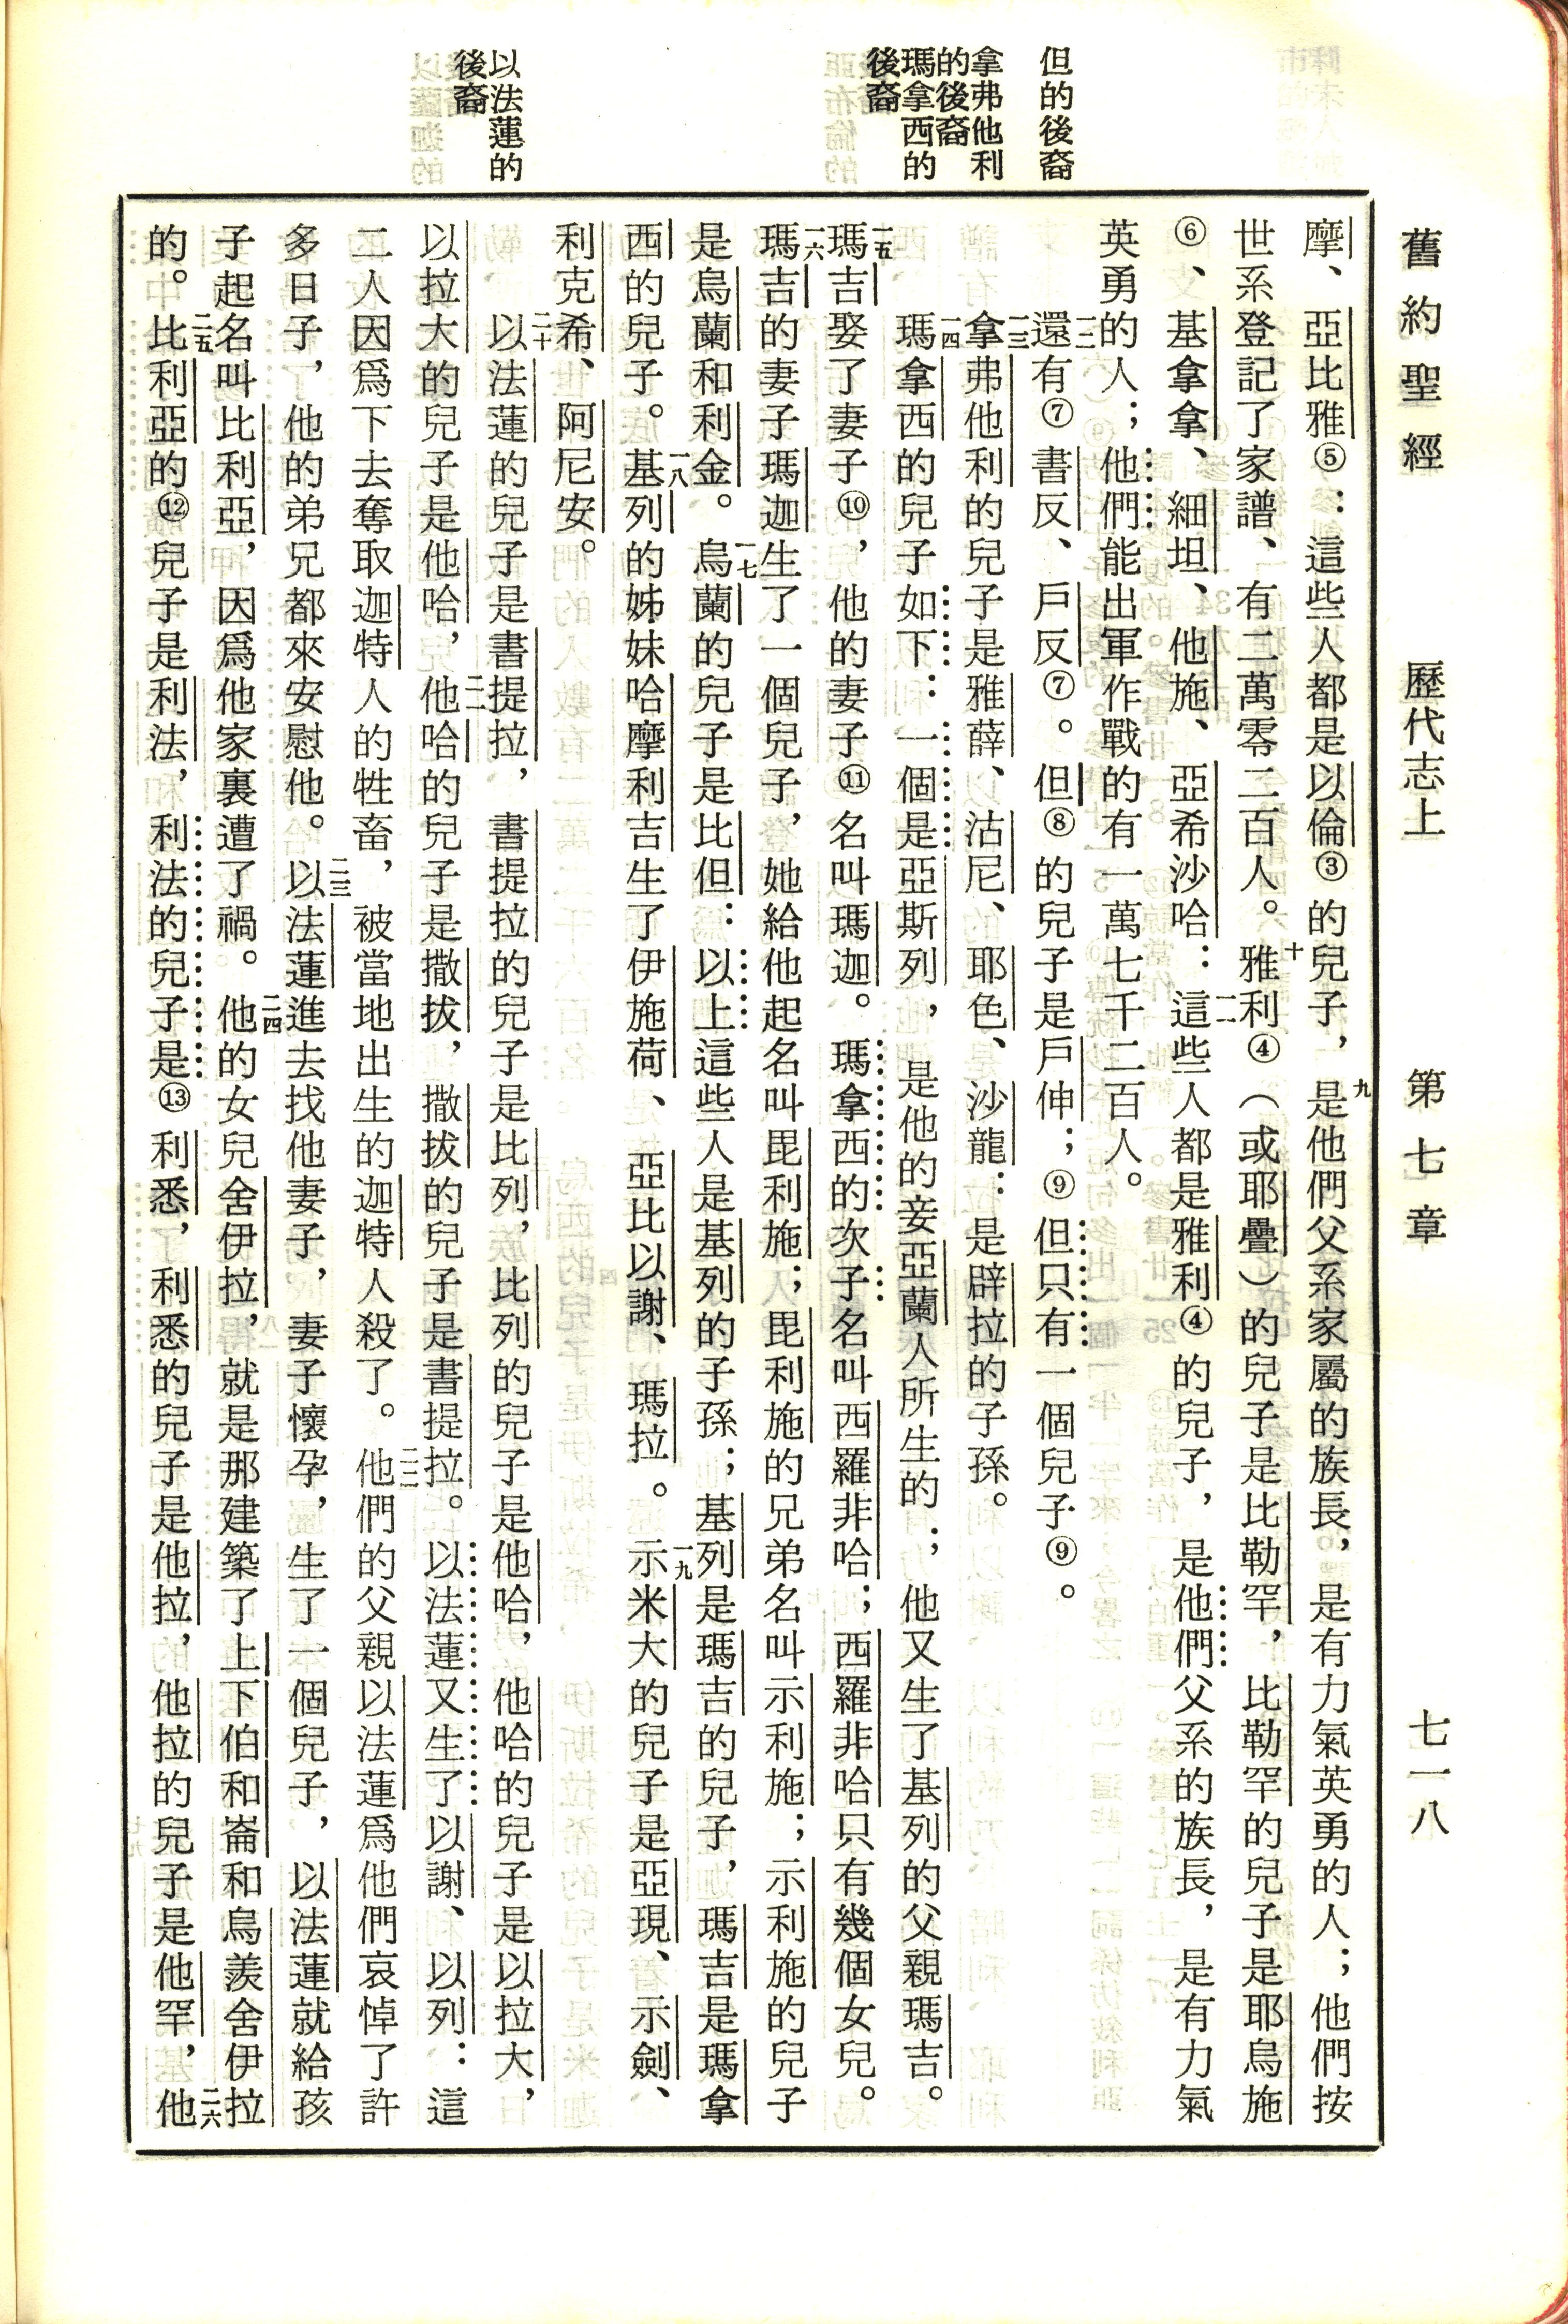 舊約聖經 歷代志上 第七章 七一八
但的後裔
拿弗他利
的後裔
瑪拿西的
後裔
以法蓮的
後裔
摩、亞比雅⑤：這些人都是以倫③的兒子，九是他們父系家屬的族長，是有力氣英勇的人；他們按
世系登記了家譜、有二萬零二百人。十雅利④（或耶疊）的兒子是比勒罕，比勒罕的兒子是耶烏施
⑥、基拿拿、細坦、他施、亞希沙哈：一一這些人都是雅利④的兒子，是他們父系的族長，是有力氣
英勇的人；他們能出軍作戰的有一萬七千二百人。
一二還有⑦書反、戶反⑦。但⑧的兒子是戶伸；⑨但只有一個兒子⑨。
一三拿弗他利的兒子是雅薛、沽尼、耶色、沙龍：是辟拉的子孫。
一四瑪拿西的兒子如下：一個是亞斯列，是他的妾亞蘭人所生的；他又生了基列的父親瑪吉。
一五瑪吉娶了妻子⑩，他的妻子⑪名叫瑪迦。瑪拿西的次子名叫西羅非哈；西羅非哈只有幾個女兒。
一六瑪吉的妻子瑪迦生了一個兒子，她給他起名叫毘利施；毘利施的兄弟名叫示利施；示利施的兒子
是烏蘭和利金。一七烏蘭的兒子是比但：以上這些人是基列的子孫；基列是瑪吉的兒子，瑪吉是瑪拿
西的兒子。一八基列的姊妹哈摩利吉生了伊施荷、亞比以謝、瑪拉。一九示米大的兒子是亞現、示劍、
利克希、阿尼安。
二十以法蓮的兒子是書提拉，書提拉的兒子是比列，比列的兒子是他哈，他哈的兒子是以拉大，
以拉大的兒子是他哈，二一他哈的兒子是撒拔，撒拔的兒子是書提拉。以法蓮又生了以謝、以列：這
二人因爲下去奪取迦特人的牲畜，被當地出生的迦特人殺了。二二他們的父親以法蓮爲他們哀悼了許
多日子，他的弟兄都來安慰他。二三以法蓮進去找他妻子，妻子懷孕，生了一個兒子，以法蓮就給孩
子起名叫比利亞，因爲他家裏遭了禍。二四他的女兒舍伊拉，就是那建築了上下伯和崙和烏羨舍伊拉
的。二五比利亞的⑫兒子是利法，利法的兒子是⑬利悉，利悉的兒子是他拉，他拉的兒子是他罕，二六他